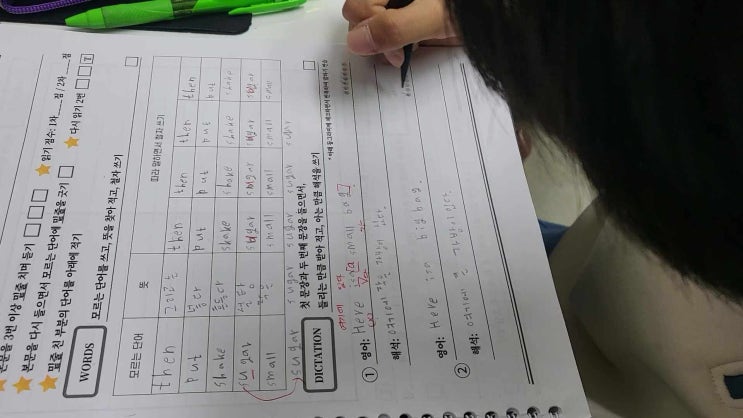 본문을 3번 이상 밑줄 치며 듣기
읽기 점수: 1차 점 / 2차 점
본문을 다시 들으면서 모르는 단어에 밑줄을 긋기
다시 읽기 2번
밑줄 친 부분의 단어를 아래에 적기
7
WORDS
모르는 단어를 쓰고, 뜻을 찾아 적고, 철자 쓰기
모르는 단어 뜻 따라 말하면서 철자 쓰기
then 그리고는 then then then then
put 놓다 put put put put
shake 흔들다 shake shake shake shake
sugar 설탕 sugar sugar sugar sugar
small 작은 small small small small
sugar sugar sugar sugar sugar
DICTATION
첫 문장과 두 번째 문장을 들으면서,
들리는 만큼 받아 적고, 아는 만큼 해석을 쓰기
여기에 있다
① 영어: Here is a small bag
해석: 여기에 작은 가방이 있다.
② 영어: Here is a big bag.
해석: 여기에 큰 가방이 있다.